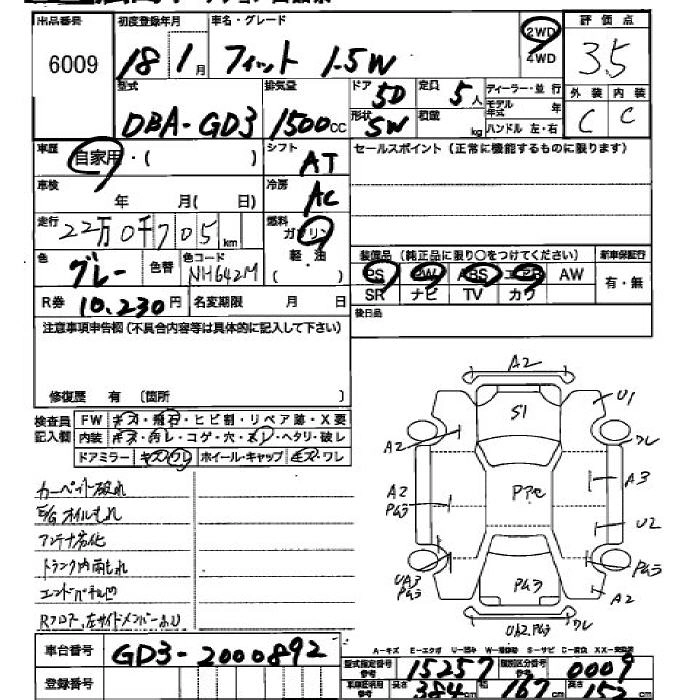 出品番号 初度登録年月 車名・グレード 評価点
6009 18年1月 フィット 1.5W 2WD 4WD 3.5
型式 排気量 ドア 5D 定員 5人 ディーラー・並行 外装 内装
DBA-GD3 1500cc 形状 SW 積載 kg モデル年式 年 C C
ハンドル 左・右
車歴 自家用・( ) シフト AT セールスポイント(正常に機能するものに限ります)
車検 年 月( 日) 冷房 AC
走行 22万0千705km 燃料 ガソリン
軽・油
( )
装備品(純正品に限り○をつけてください) 新車保証行
色 グレー 色替 色コード NH642M
PS PW ABS エアB AW 有・無
SR ナビ TV カワ
R券 10.230円 名変期限 月 日
後日品
注意事項申告欄(不具合内容等は具体的に記入して下さい)
修復歴 有 〔箇所 〕
検査員記入欄 FW キズ・飛石・ヒビ割・リペア跡・X要
内装 キズ・汚レ・コゲ・穴・スレ・ヘタリ・破レ
ドアミラー キズ・ワレ ホイール・キャップ キズ・ワレ
カーペット破れ
E/Gオイルもれ
アンテナ劣化
トランク内雨もれ
エンドパネル凹
Rフロア、左サイドメンバーふり
A2
S1 U1
A2 ワレ
A2 PG3 PPe A3
U2
UA3 PG3 PG3 PG3
A2
Ub2.PG3 ワレ
A-キズ E-エクボ U-凹ミ W-補修跡 S-サビ C-腐食 XX-交換済
車台番号 GD3-2000892
型式指定番号 参考 15257 類別区分番号 参考 0009
登録番号
車庫証明用 参考 長さ 384cm 幅 167cm 高さ 152cm